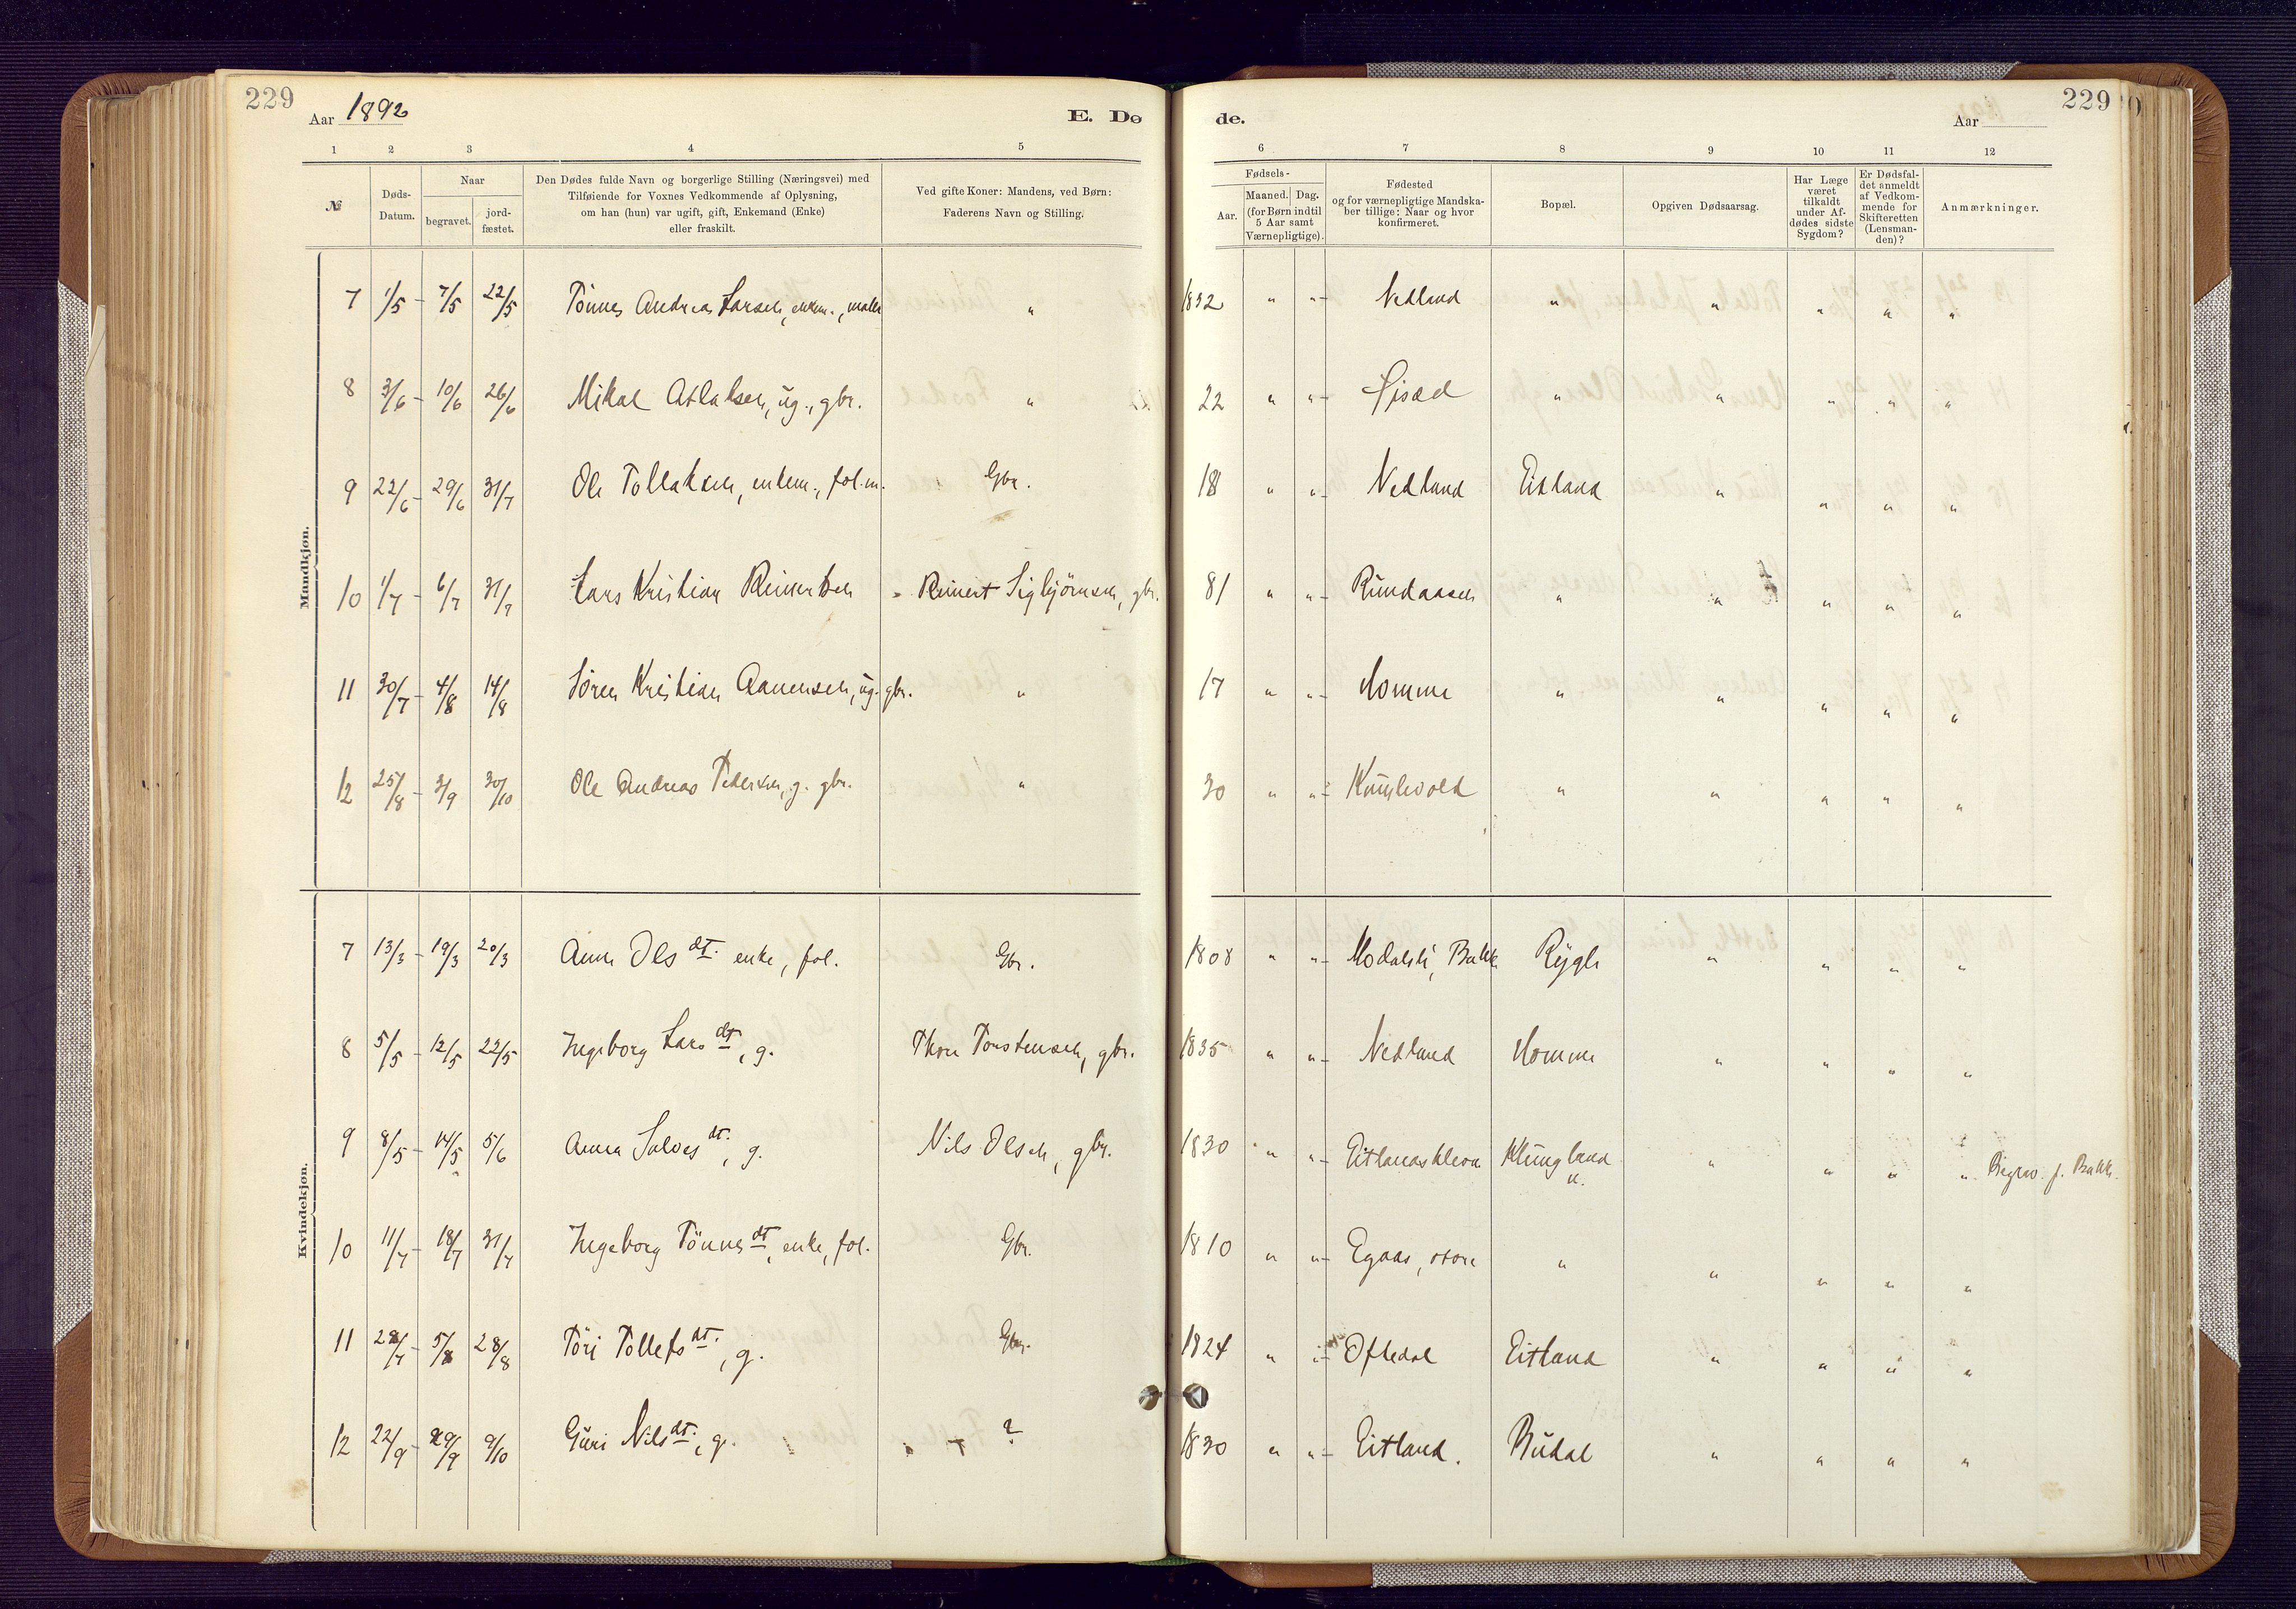 229
Aar 1892
E. Dø
1 2 3 4 5
№
Døds-Datum.
Naar
begravet.
jord-fæstet.
Den Dødes fulde Navn og borgerlige Stilling (Næringsvei) med
Tilføiende for Voxnes Vedkommende af Oplysning,
om han (hun) var ugift, gift, Enkemand (Enke)
eller fraskilt.
Ved gifte Koner: Mandens, ved Børn:
Faderens Navn og Stilling.
de.
Aar
229
6 7 8 9 10 11 12
Fødsels-
Aar.
Maaned. Dag.
(for Børn indtil
5 Aar samt
Værnepligtige).
Fødested
og for værnepligtige Mandska-
ber tillige: Naar og hvor
konfirmeret.
Bopæl.
Opgiven Dødsaarsag.
Har Læge
været
tilkaldt
under Af-
dødes sidste
Sygdom?
Er Dødsfal-
det anmeldt
af Vedkom-
mende for
Skifteretten
(Lensman-
den)?
Anmærkninger.
Mandkjøn.
7 1/5 - 7/5 22/5 Tönnes Andreas Larsen, enkem., maler " 1832 " " - Nedland " " " " "
8 3/6 - 10/6 26/6 Mikal Atlaksen, ug., gbr. " 22 " " - " " " " "
9 22/6 - 29/6 31/7 Ole Tollaksen, enkem., fol.m. Gbr. 18 " " - Nedland Eitland " " " "
10 1/7 - 6/7 31/7 Lars Kristian Reinertsen Reinert Sigbjörnsen, gbr. 81 " " - Rundaasen " " " " "
11 30/7 - 4/8 14/8 Sören Kristian Aanensen, ug. gbr. " 17 " " - Homme " " " " "
12 25/8 - 3/9 30/10 Ole Andreas Pedersen, g. gbr. " 30 " " - " " " " "
Kvindekjøn.
7 13/3 - 19/3 20/3 Anne Ols dt. enke, fol. Gbr. 1808 " " - Modalsli, Bakke Rygh " " " "
8 5/5 - 12/5 22/5 Ingeborg Lars dt, g. Thore Torstensen, gbr. 1835 " " - Nedland Homme " " " "
9 8/5 - 14/5 5/6 Anna Salves dt., g. Nils Olsen, gbr. 1830 " " - Eitlandskleva Klungland " " " " Begrav. p. Bakke.
10 11/7 - 18/7 31/7 Ingeborg Tönnes dt, enke, fol. Gbr. 1810 " " - Egaas, store " " " " "
11 28/7 - 5/8 28/8 Töri Tollefs dt., g. Gbr. 1824 " " - Oftedal Eitland " " " "
12 22/9 - 29/9 9/10 Guri Nils dt., g. ? 1830 " " - Eitland. Budal " " " "